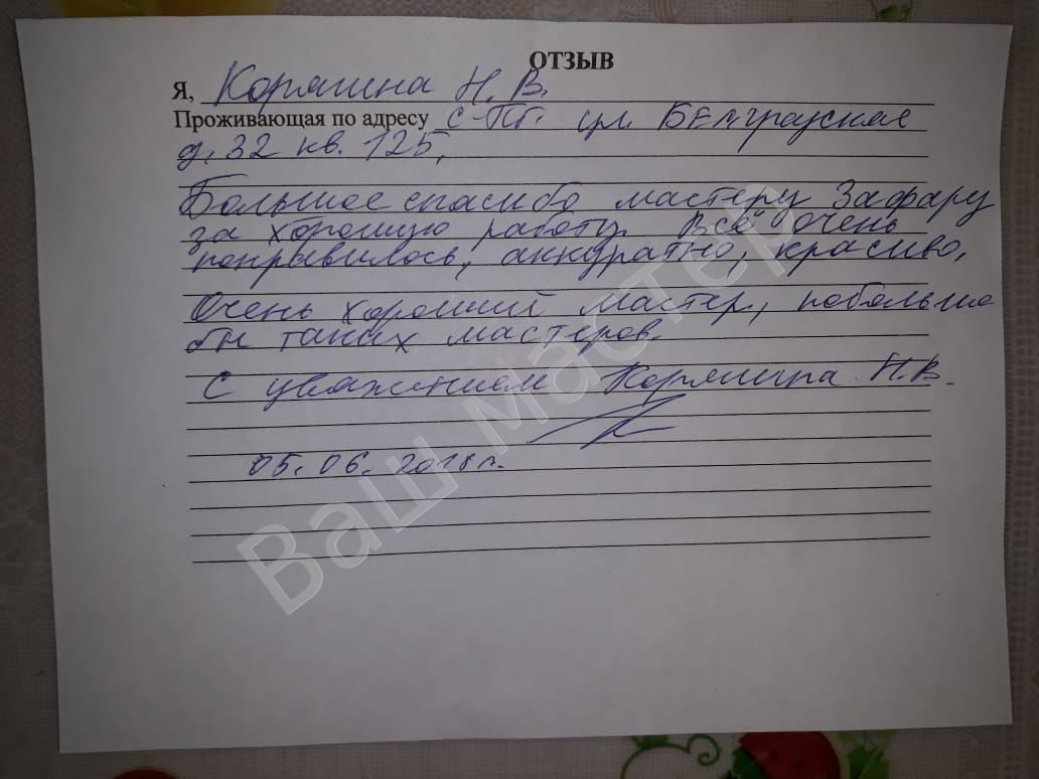 ОТЗЫВ
Я, Корягина Н. В.
Проживающая по адресу С-Пт. ул. Белградская
д. 32 кв. 125,
Большое спасибо мастеру Зафару
за хорошую работу. Всё очень
понравилось, аккуратно, красиво,
Очень хороший мастер, побольше
бы таких мастеров.
С уважением Корягина Н.В.
05.06.2018г.
Ваш мастер